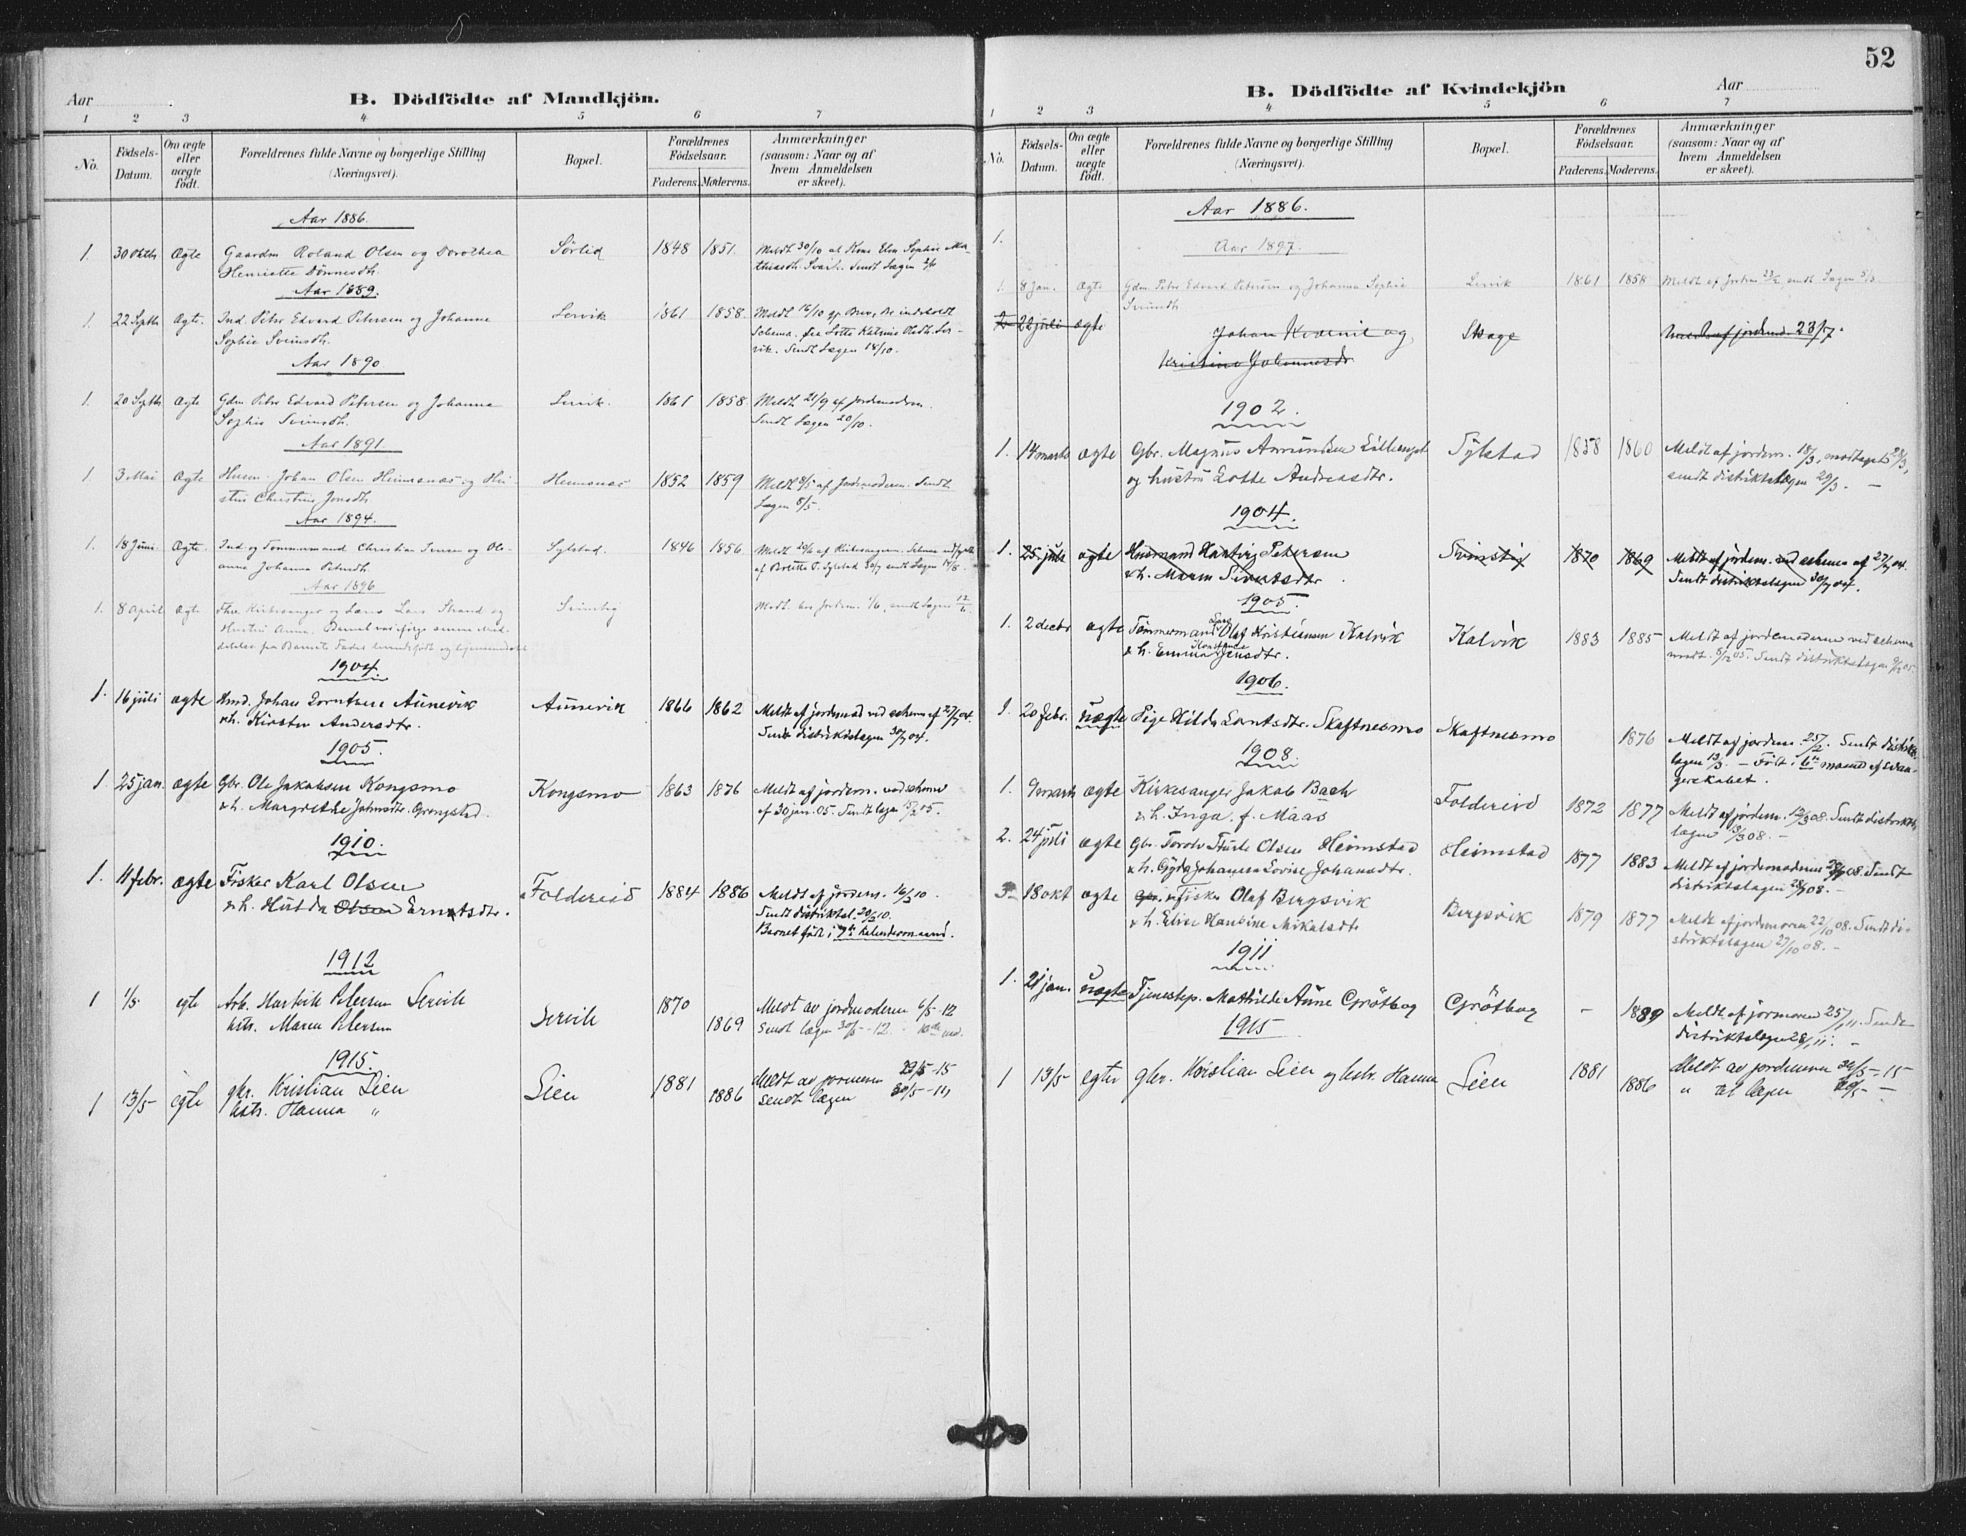 Aar
B. Dödfödte af Mandkjön.
1 2 3 4 5 6 7
No.
Födsels-
Datum.
Om ægte
eller
uægte
födt.
Forældrenes fulde Navne og borgerlige Stilling
(Næringsvei).
Bopæl.
Forældrenes
Födselsaar.
Faderens. Moderens.
Anmærkninger
(saasom: Naar og af
hvem Anmeldelsen
er skeet).
Aar 1886.
1. 30 Oktb. Ægte Gaardm Roland Olsen og Dorothea Sørlid 1848 1851. Meldt 30/10 af
Henriette Dönnesdtr.
Aar 1889.
1. 22 Septb Ægte. Ind. Peter Edvard Petersen og Johanna Servik 1861 1858. Meldt 16/10
Sophie Sveinsdtr.
vik. Sendt Lægen 18/10.
Aar 1890
1. 20 Septb Ægte Gdm Peter Edvard Petersen og Johanna Servik. 1861 1858. Meldt 21/9 af Jordemoderen.
Sophie Sveinsdtr. Sendt Lægen 20/10.
Aar 1891.
1. 3 Mai Ægte Husm. Johan Olsen Heimsnæs og Hu- Heimsnæs 1852 1859 Meldt 8/5 af Jordmoderen. Sendt
stru Christine Jonsdtr. Lægen 8/5.
Aar 1894.
1. 18 Juni Ægte. Ind. og Tømmermand Christian Iversen og Ole- Sylstad. 1846 1856. Meldt 20/6 af Kirkesangeren.
anna Johanna Petersdtr.
Aar 1896
1. 8 April ægte Kirkesanger og Lærer Lars Strand og
Hustru Anna. Barnet var ifølge
1904.
1. 16 juli ægte Hmd. Johan Lorntsen Aunevik Aunevik 1866 1862 Meldt af jordemod ved schema af 27/7 04.
&h. Kirsten Andersdtr. Sendt distriktslægen 30/7 04.
1905.
1 25 jan. ægte Gbr. Ole Jakobsen Kongsmo Kongsmo 1863 1876 Meldt af jordem. ved schema
&h. Margrethe Johnsdtr. Grongstad. af 30 jan. 05. Sendt lægen 15/2 05.
1910.
1. 11 febr. ægte Fisker Karl Olsen Foldereid 1884 1886 Meldt af jordem. 16/3 10.
&h. Hulda Olsen Erntsdtr. Sendt distriktsl. 20/3 10.
Barnet født i 7de kalendermaaned.
1912
1 1/5 egte Arb. Hartvik Petersen Servik Servik 1870 1869 Meldt av jordmoderen 6/5-12
hstr. Maren Petersen Sendt lægen 30/5-12.
1915.
1 13/5 egte gbr. Kristian Lien Lien 1881 1886 Meldt av jormoren 29/5-15
hstr. Hanna " sendt lægen 30/5-15
52
B. Dödfödte af Kvindekjön
Aar
1 2 3 4 5 6 7
No.
Födsels-
Datum.
Om ægte
eller
uægte
födt.
Forældrenes fulde Navne og borgerlige Stilling
(Næringsvei).
Bopæl.
Forældrenes
Födselsaar.
Faderens. Moderens.
Anmærkninger
(saasom: Naar og af
hvem Anmeldelsen
er skeet).
Aar 1886.
1.
Aar 1897.
1. 8 Jan. Ægte Gdm. Peter Edvard Petersen og Johanna Sophie Servik 1861 1858 Meldt af Jordem 23/2, sendt Lægen 5/3.
Sveinsdtr
2. 22 juli ægte Johan Kvernil og Skage Meldt af jordemod. 23/7.
Kristine Johannesdr
1902.
1. 14 marts ægte Gbr. Magnus Amundsen Sylstad 1858 1860 Meldt af jordem. 18/3, modtaget 28/3,
og hustru Lotte Andreasdtr. sendt distriktslægen 29/3. —
1904.
1. 25 juli ægte Husmand Hartvig Petersen 1870 1869 Meldt af jordem. ved schema af 27/7 04.
&h. Maren Sivertsdtr. Sendt distriktslægen 30/7 04.
1905.
1. 2 decbr ægte Tømmermand Olaf Kristiansen Kalvik Kalvik 1883 1885 Meldt af jordemoderen ved schema
&h. Emma Konstance Jensdtr. modt. 5/12 05. Sendt distriktslægen 9/12 05.
1906.
1. 20 febr. uægte Pige Hilda Lorntsdtr. Skaftnesmo Skaftnesmo 1876 Meldt af jordem. 25/2. Sendt distrikts-
lægen 13/3. — Født i 6te maaned af svan-
gerskabet.
1908.
1. 9 marts ægte Kirkesanger Jakob Bach Foldereid 1872 1877 Meldt af jordem. 12/3 08. Sendt distrikts
&h. Inga f. Maas lægen 13/3 08. —
2. 24 juli ægte Gbr. Olsen Heimstad Heimstad 1877 1883 Meldt af jordemoderen 08. Sendt
&h. Gyda Johanna Lovise Johansdtr. distriktslægen 08. —
3 18 okt ægte Fisker Olaf Bergsvik Bergsvik 1879 1877 Meldt af jordmoren 22/10 08. Sendt di-
&h. Elise Hansine Mikalsdtr striktslægen 27/10 08. —
1911
1. 21 jan. uægte Tjenestep. Mathilde Aune Grøtbog Grøtbog — 1889 Meldt af jormoren 25/1 11. Sendt
distriktslægen 28/1 11. —
1915
1 13/5 egte gbr. Kristian Lien og hstr. Hanna Lien 1881 1886 Meldt av jordmoren 29/5-15
" til lægen 30/5 —